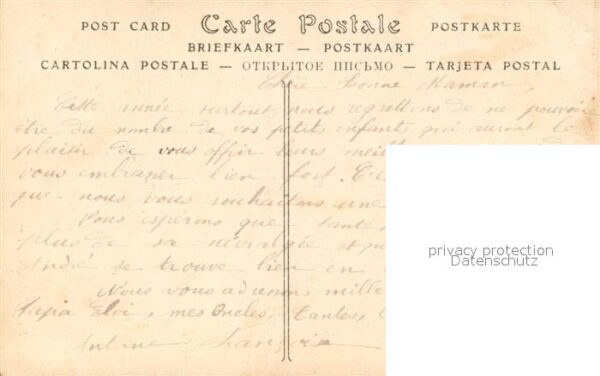 POST CARD Carte Postale POSTKARTE
BRIEFKAART — POSTKAART
CARTOLINA POSTALE — ОТКРЫТОЕ ПИСЬМО — TARJETA POSTAL
Chère Bonne Maman,
Cette année surtout, nous regrettons de ne pouvoir
être du nombre de vos petits enfants qui auront le
plaisir de vous offrir leurs meill
vous embrasser bien fort.
que nous vous souhaitons une
Nous espérons que tante
plus de sa névralgie et qu
André se trouve bien en
Nous vous adressons mille
Papa Eloi, mes Oncles, Tantes,
Antoine François
privacy protection
Datenschutz